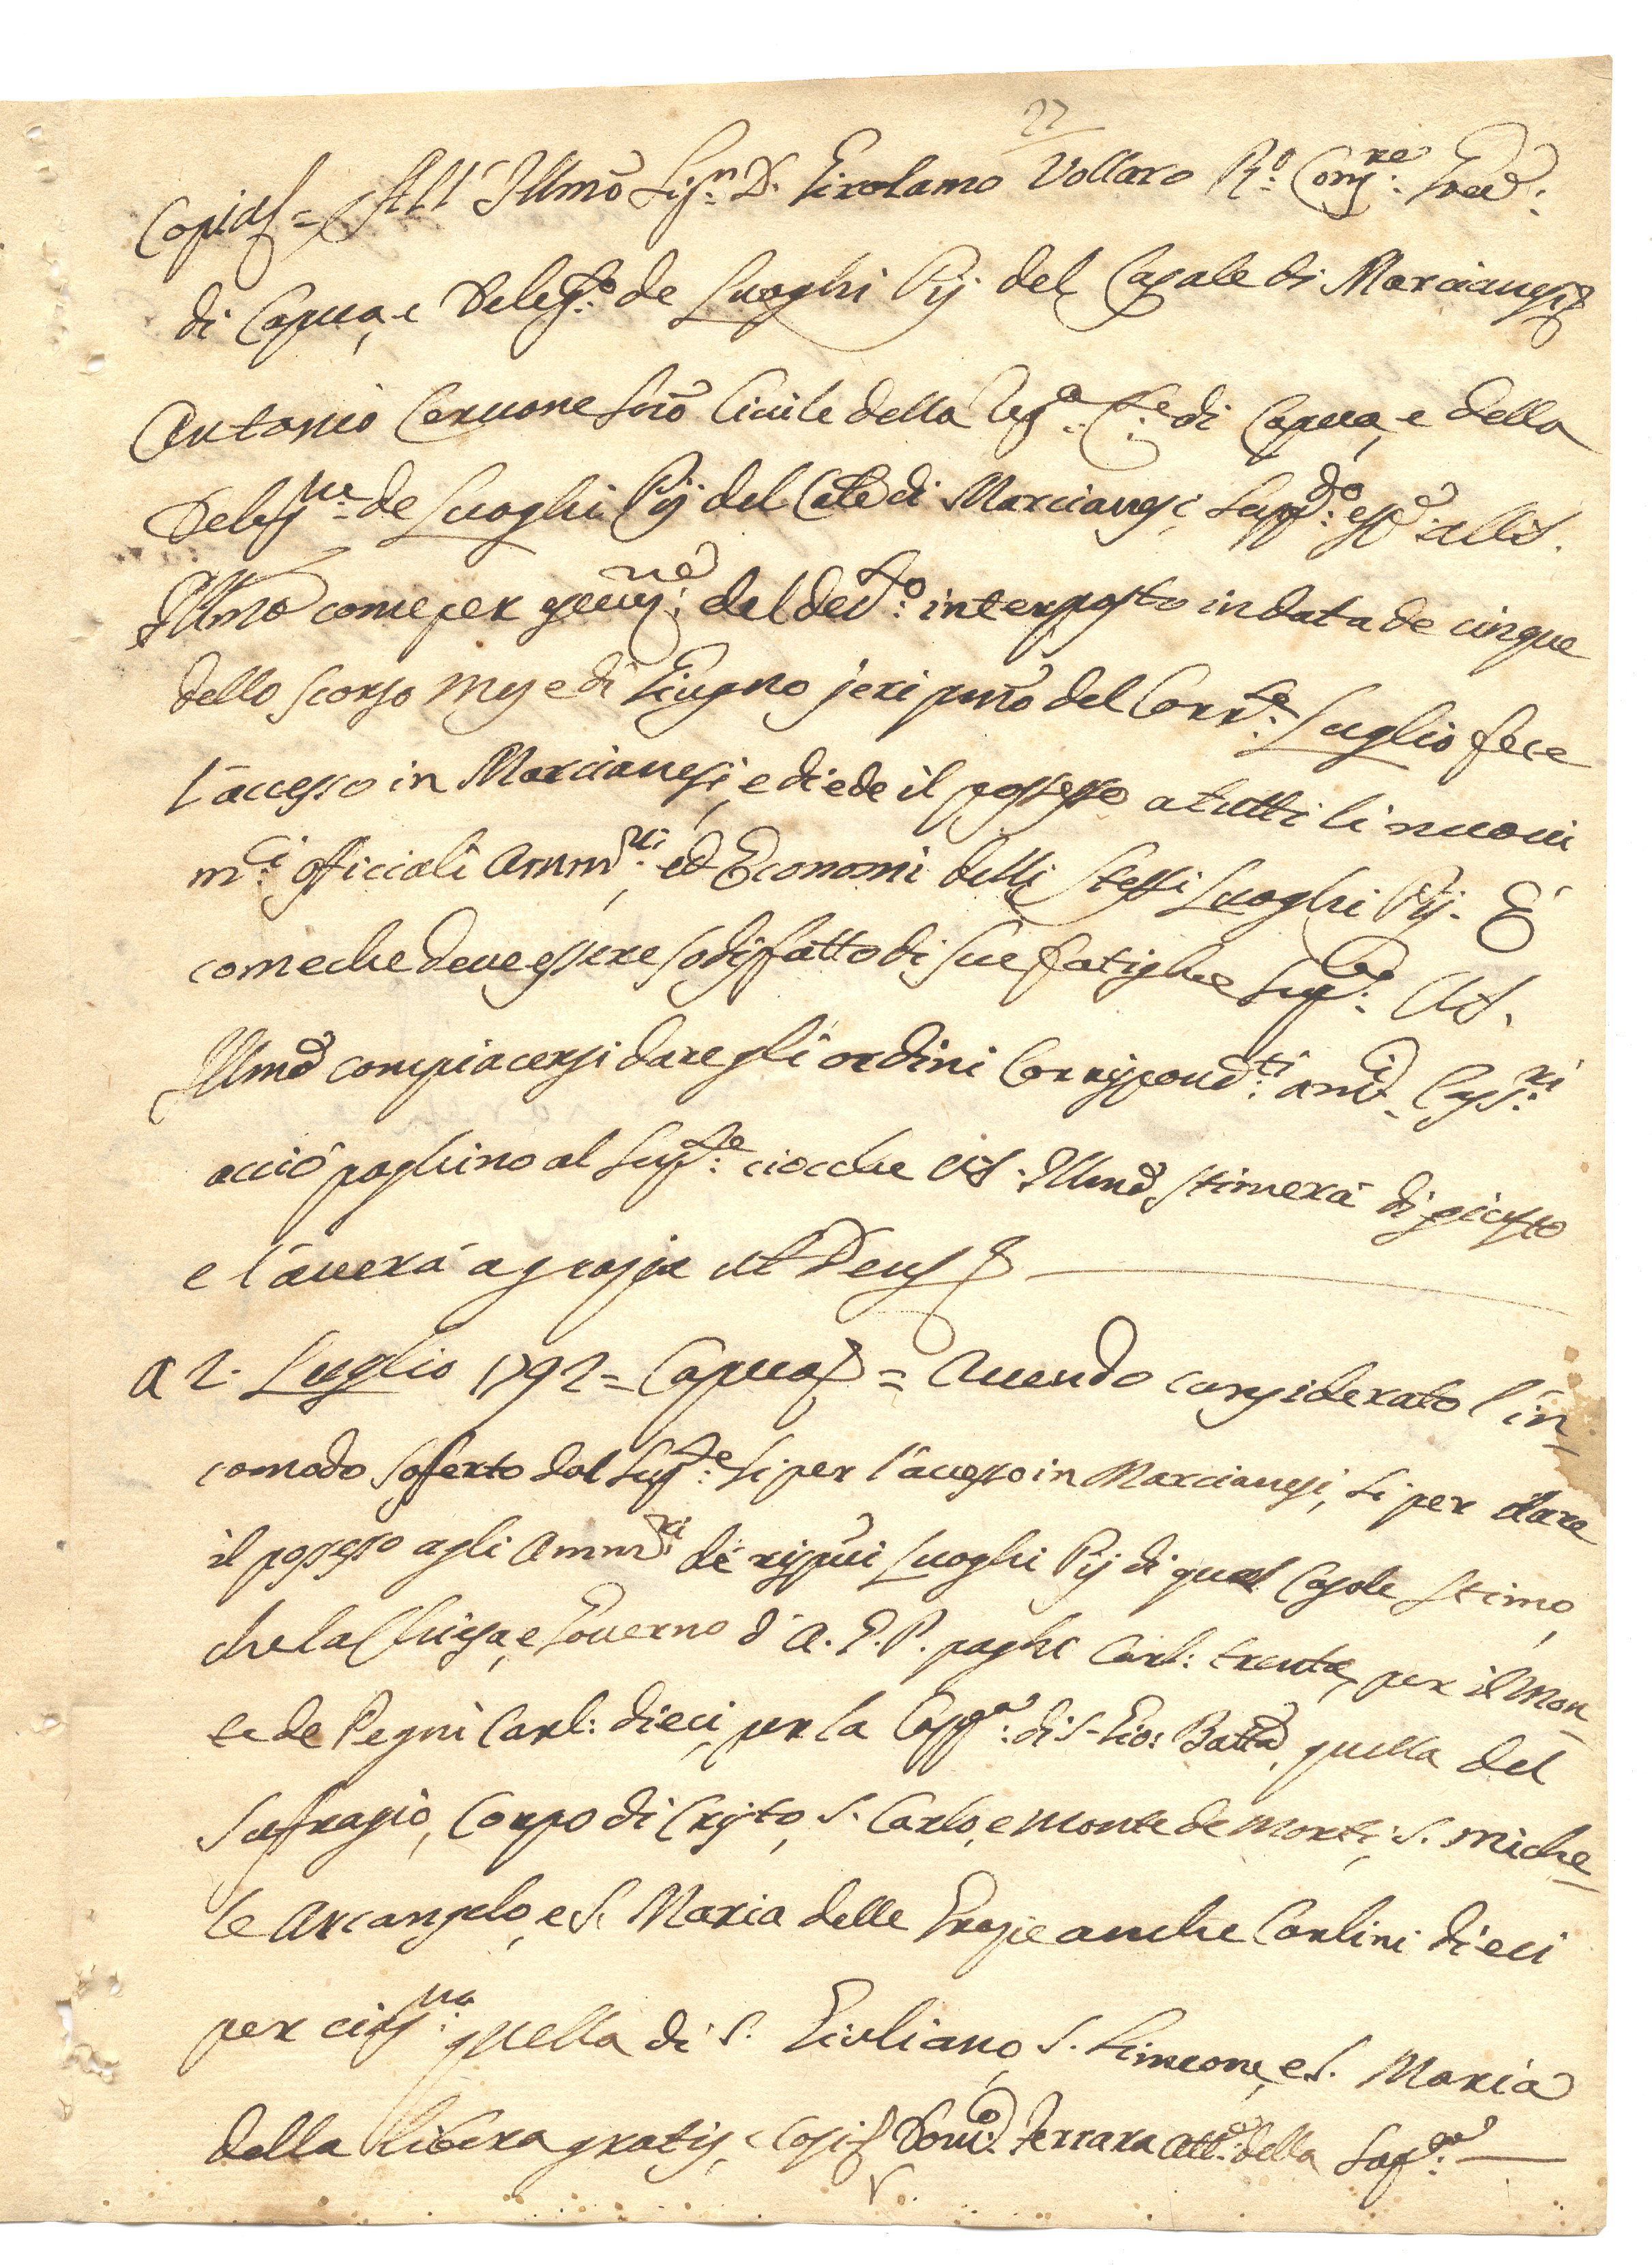 27
Copia = All' Illmo Sig.n D. Girolamo Vollaro R.o Cons.re Gov.e
di Capua, e Deleg.to de Luoghi Pij del Casale di Marcianesi
Antonio Cervone Scrō Civile della Reg.a C.te di Capua, e della
Deleg.ne de Luoghi Pij del Cāle di Marcianesi, supp.do esp.e a V.S.
Illma come per esecuz.ne del dec.to interposto in data de cinque
dello scorso mese di Giugno jeri pmo del Corr.te Luglio fece
l'accesso in Marcianesi, e diede il possesso a tutti li nuovi
m.ci officiali Amm.ri, ed Economi delli stessi Luoghi Pij. E
comeche deve essere sodisfatto di sue fatighe sup.ca V.S.
Illma compiacersi dare gli ordini Corrispond.ti a med.i Cass.ri
acciò paghino al Sup.te ciocche V.S. Illma stimerà di giusto
e l'averà a grazia ut Deus
A 2. Luglio 1792 = Capua = Avendo considerato l'in-
comodo sofferto dal Sup.te sì per l'accesso in Marcianesi, sì per dare
il possesso agli Amm.ri de rispvi Luoghi Pij di quel Casale stimo,
che la Chiesa, e Governo d'A. G. P. paghi Carl: trenta, per il Mon-
te de Pegni Carl: dieci, per la Capp.a di S. Gio: Batta, quella del
Sufragio, Corpo di Cristo, S. Carlo, e Monte de Morti, S. Miche-
le Arcangelo, e S. Maria delle Grazie anche Carlini dieci
per cias.na quella di S. Giuliano, S. Simeone, e S. Maria
della Libera gratis, Così Dom.co Ferrara Att.e della Sag.a